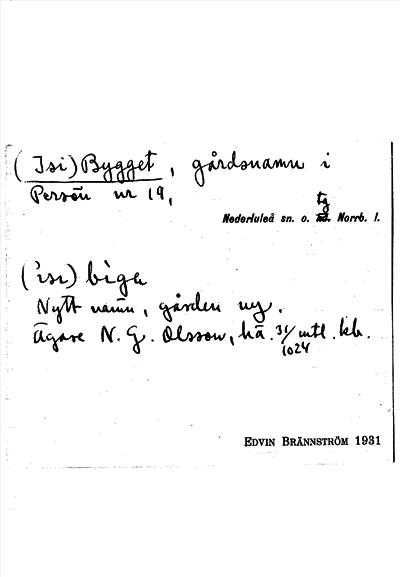 (Isi) Bygget, gårdsnamn i
Persön nr 19,
tg
Nederluleå sn. o. hd. Norrb. l.
(ˈisi) biga
Nytt namn, gården ny.
Ägare N. G. Olsson, ha. 31/1024 mtl. kr.
EDVIN BRÄNNSTRÖM 1931